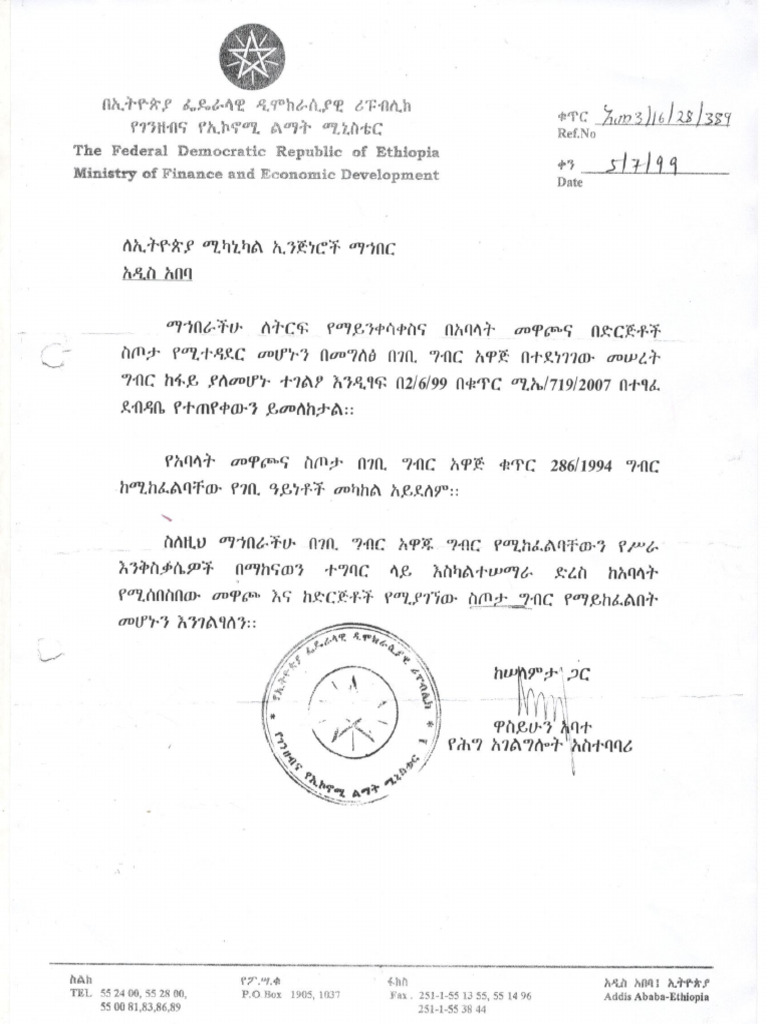 በኢትዮጵያ ፌዴራላዊ ዲሞክራሲያዊ ሪፑብሊክ
የገንዘብና የኢኮኖሚ ልማት ሚኒስቴር
The Federal Democratic Republic of Ethiopia
Ministry of Finance and Economic Development
ቁጥር 3/16/28/389
Ref.No
ቀን 5/7/99
Date
ለኢትዮጵያ ሚካኒካል ኢንጅነሮች ማኅበር
አዲስ አበባ
ማኅበራችሁ ለትርፍ የማይንቀሳቀስና በአባላት መዋጮና በድርጅቶች
ስጦታ የሚተዳደር መሆኑን በመግለፅ በገቢ ግብር አዋጅ በተደነገገው መሠረት
ግብር ከፋይ ያለመሆኑ ተገልፆ እንዲፃፍ በ2/6/99 በቁጥር ሚኤ/719/2007 በተፃፈ
ደብዳቤ የተጠየቀውን ይመለከታል።
የአባላት መዋጮና ስጦታ በገቢ ግብር አዋጅ ቁጥር 286/1994 ግብር
ከሚከፈልባቸው የገቢ ዓይነቶች መካከል አይደለም።
ስለዚህ ማኅበራችሁ በገቢ ግብር አዋጁ ግብር የሚከፈልባቸውን የሥራ
እንቅስቃሴዎች በማከናወን ተግባር ላይ እስካልተሠማራ ድረስ ከአባላት
የሚሰበስበው መዋጮ እና ከድርጅቶች የሚያገኘው ስጦታ ግብር የማይከፈልበት
መሆኑን እንገልፃለን።
ከሠላምታ ጋር
ዋስይሁን አባተ
የሕግ አገልግሎት አስተባባሪ
የኢትዮጵያ ፌዴራላዊ ዲሞክራሲያዊ ሪፐብሊክ
የገንዘብና የኢኮኖሚ ልማት ሚኒስቴር
ስልክ
TEL 55 24 00, 55 28 00,
55 00 81,83,86,89
የፖ.ሣ.ቁ
P.O.Box 1905, 1037
ፋክስ
Fax . 251-1-55 13 55, 55 14 96
251-1-55 38 44
አዲስ አበባ፤ ኢትዮጵያ
Addis Ababa-Ethiopia